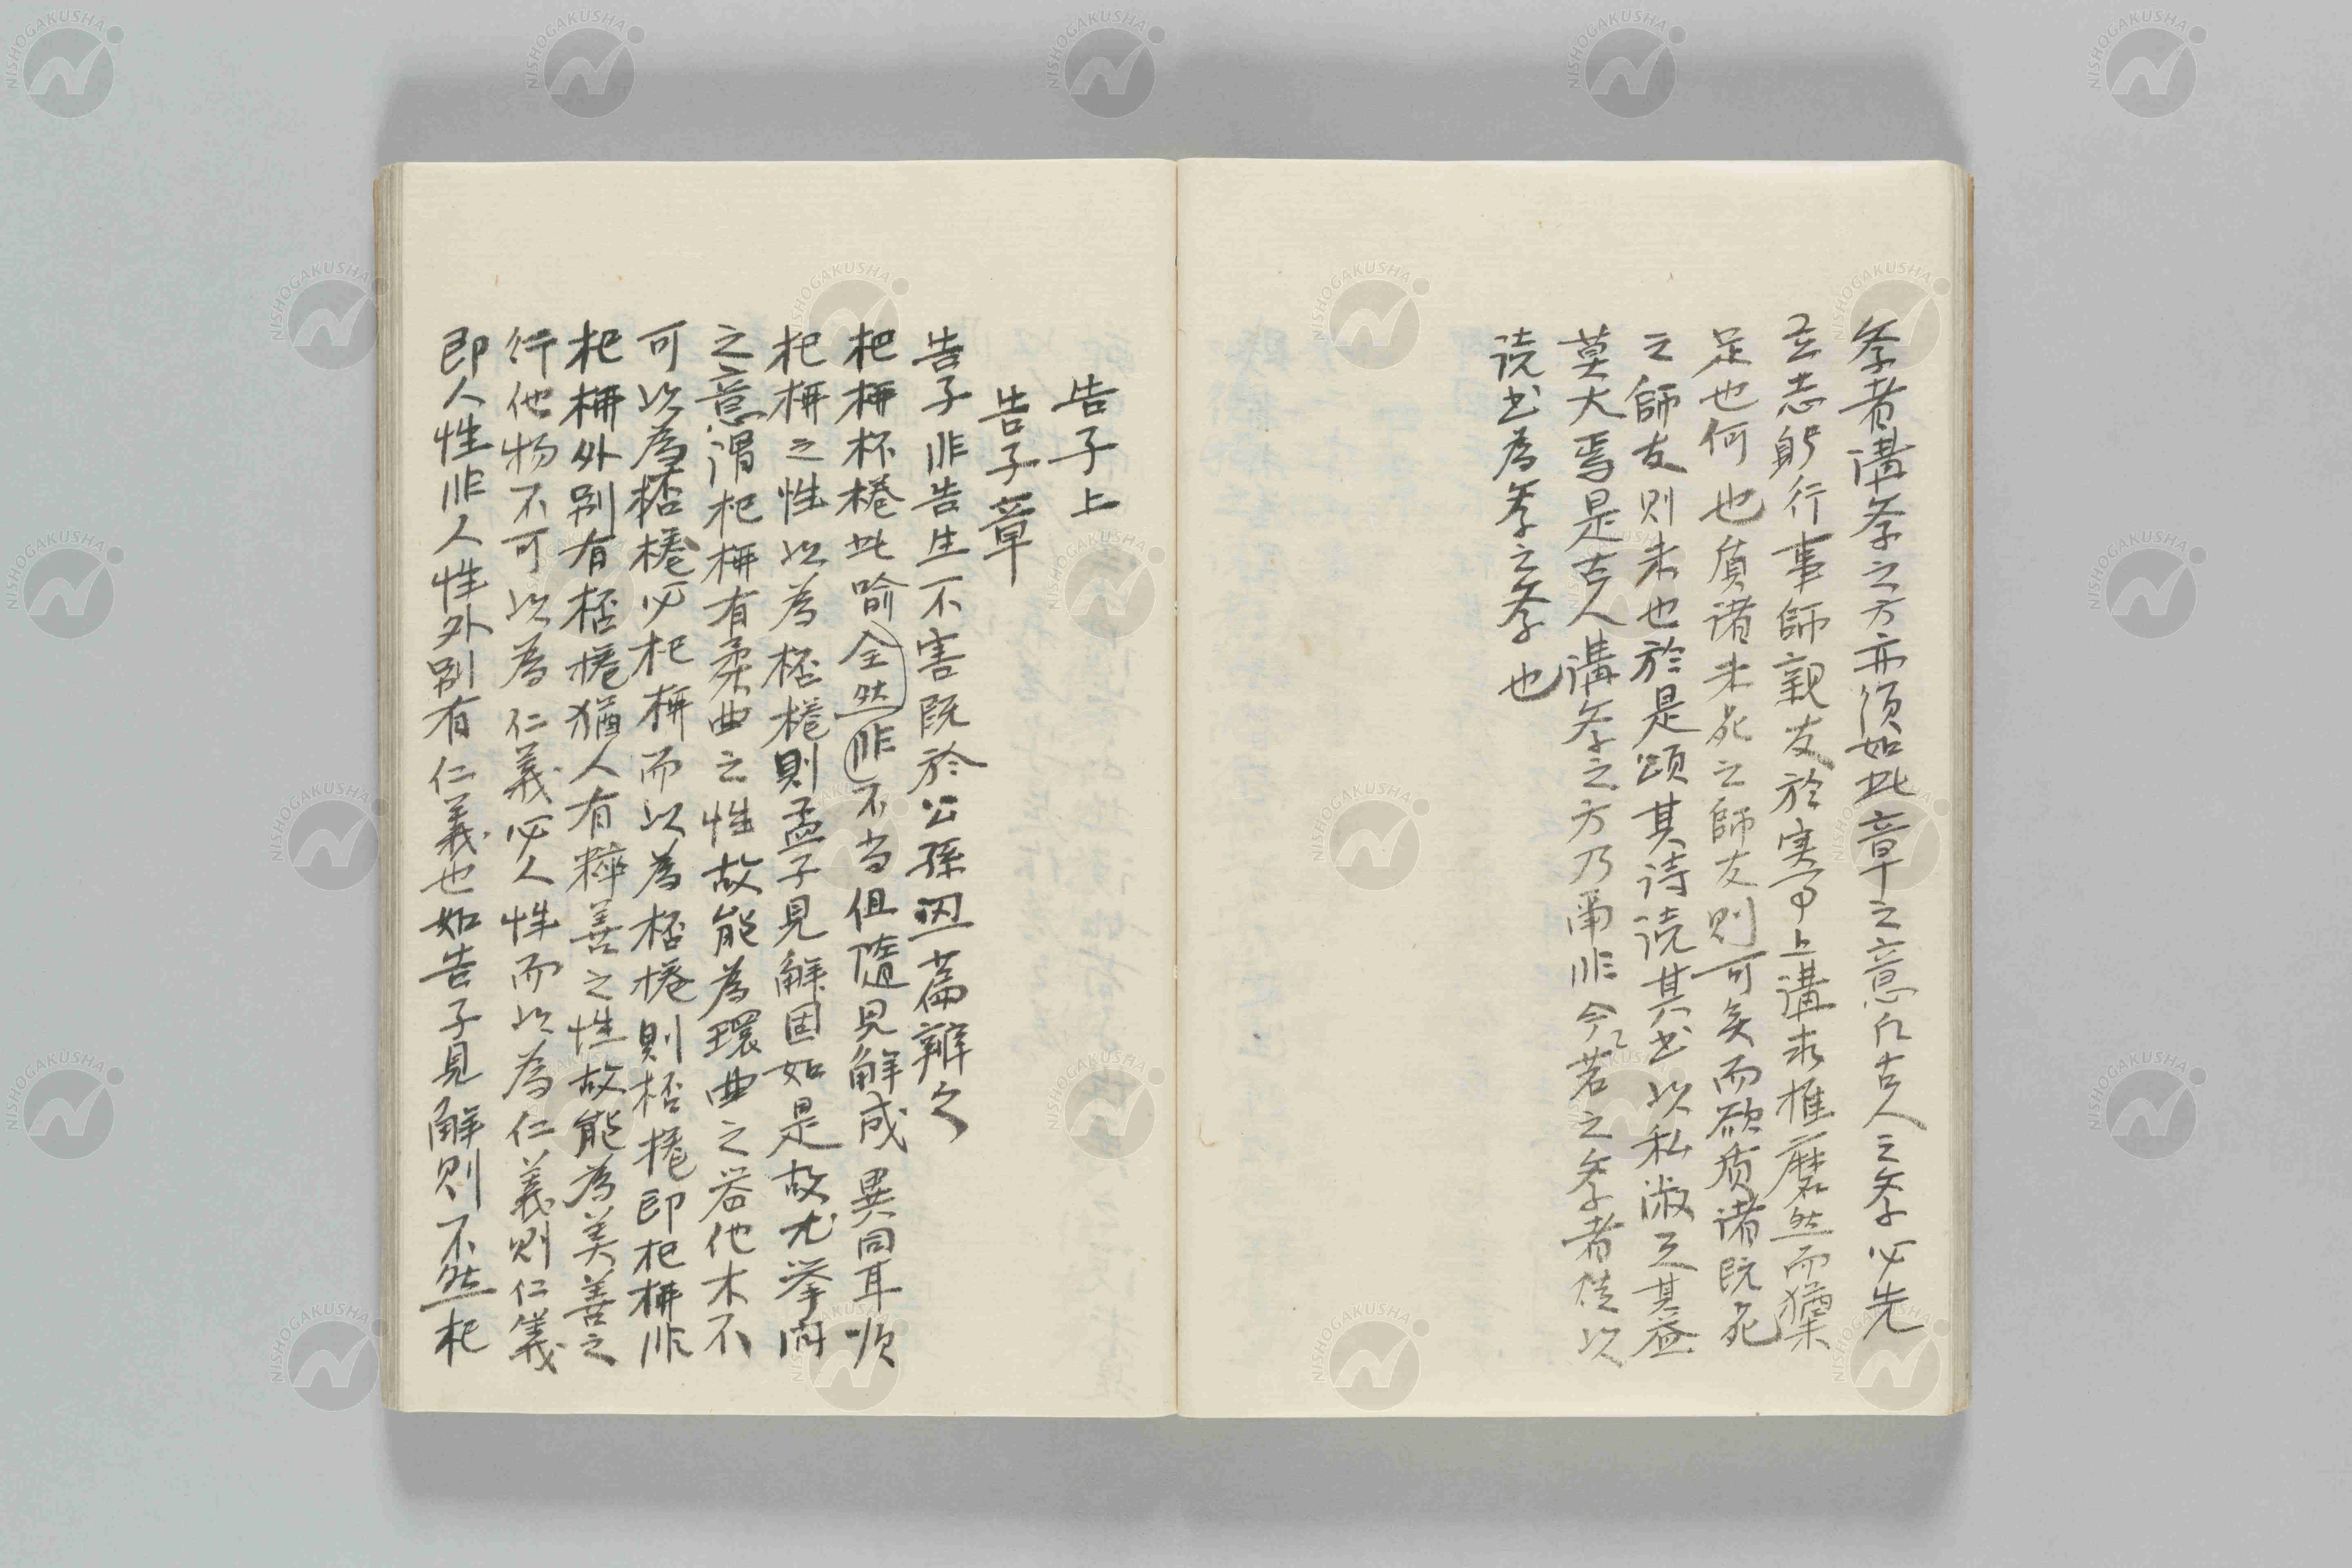 孝者講孝之方亦須如此章之意凡古人之孝必先
立志躬行事師親友於実事上講求推磨然而猶未
足也何也質諸未死之師友則可矣而欲質諸既死
之師友則未也於是頌其詩読其書以私淑之其益
莫大焉是古人講孝之方乃爾非今之若之孝者徒以
読書為孝之孝也
告子上
告子章
告子非告生不害既於公孫丑篇辨之
杞柳杯棬此喩全然非不当但隨見解成異同耳順
杞柳之性以為桮棬則孟子見解固如是故尤挙而
之意謂杞柳有柔曲之性故能為環曲之器他木不
可以為桮棬必杞柳而以為桮棬則桮棬即杞柳非
杞柳外別有桮棬猶人有粹善之性故能為美善之
行他物不可以為仁義必人性而以為仁義則仁義
即人性非人性外別有仁義也如告子見解則不然杞